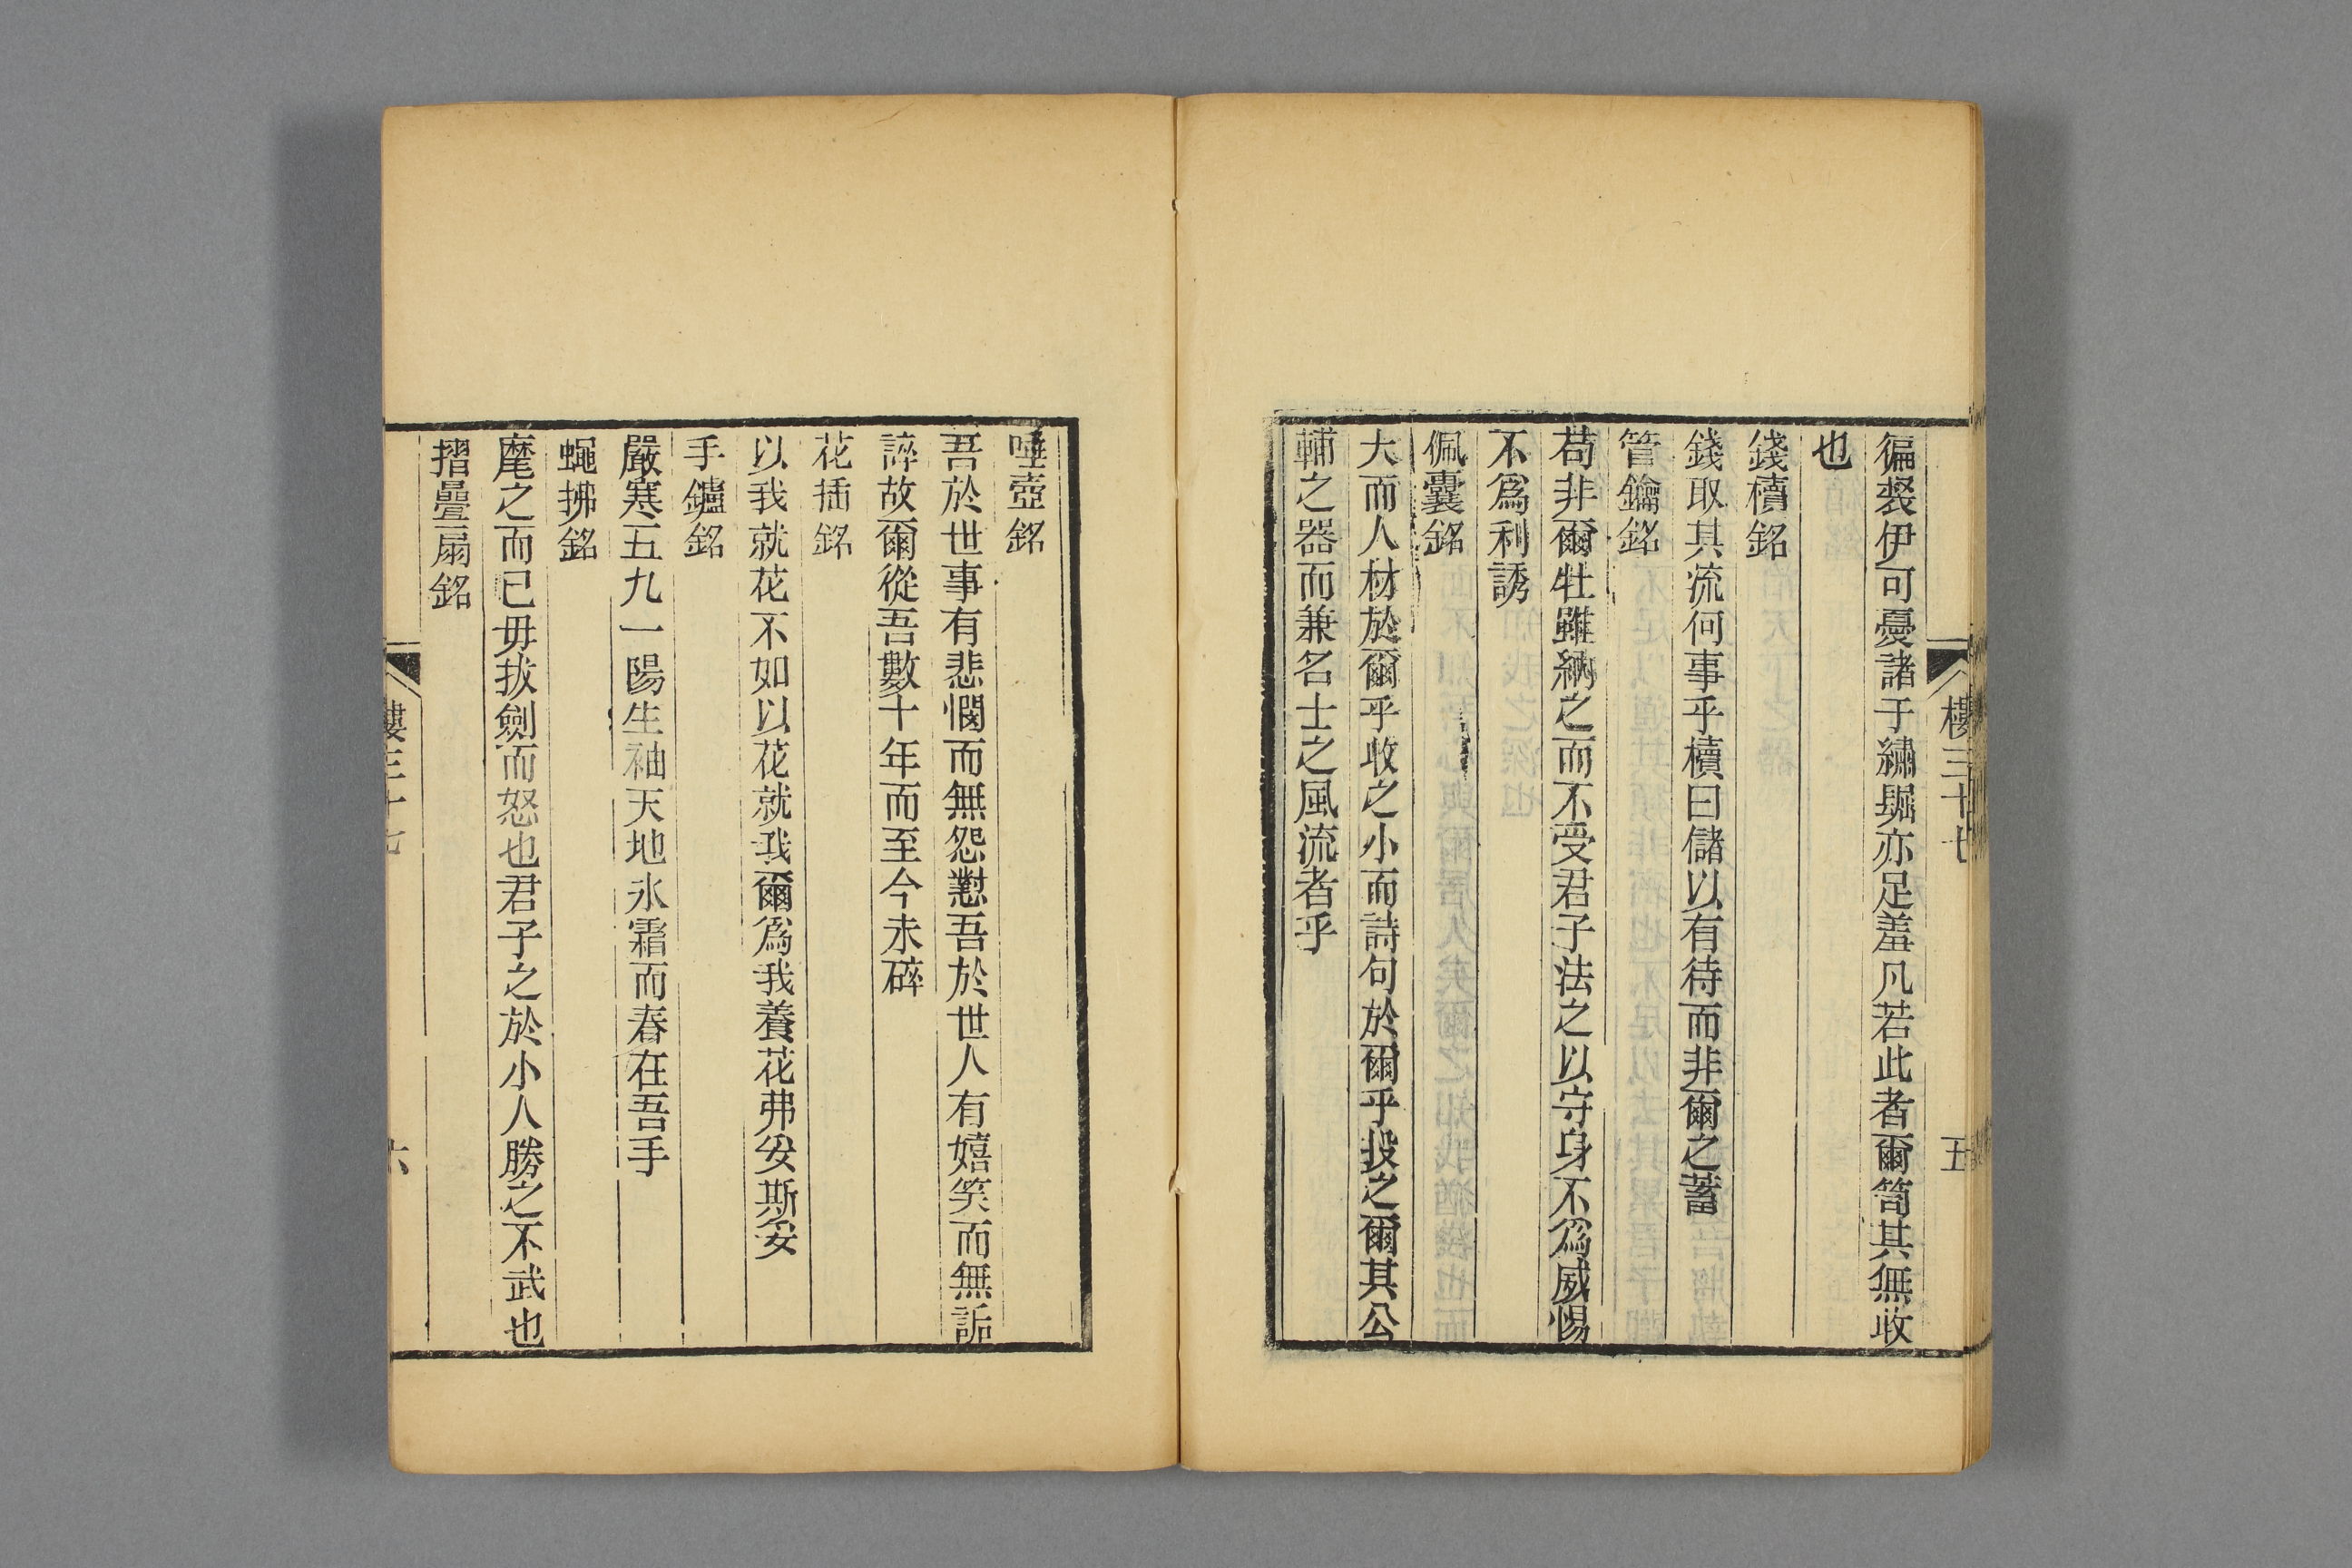 偏裻伊可憂諸于繡𧝞亦足羞凡若此者爾笥其無收
也
錢櫝銘
錢取其流何事乎櫝曰儲以有待而非爾之蓄
管鑰銘
苟非爾牡雖納之而不受君子法之以守身不爲威惕
不爲利誘
佩囊銘
大而人材於爾乎收之小而詩句於爾乎投之爾其公
輔之器而兼名士之風流者乎
樓三十七
五
唾壺銘
吾於世事有悲憫而無怨懟吾於世人有嬉笑而無詬
誶故爾從吾數十年而至今未碎
花插銘
以我就花不如以花就我爾爲我養花弗妥斯妥
手鑪銘
嚴寒五九一陽生袖天地氷霜而春在吾手
蠅拂銘
麾之而已毋拔劍而怒也君子之於小人勝之不武也
摺疊扇銘
樓三十七
六